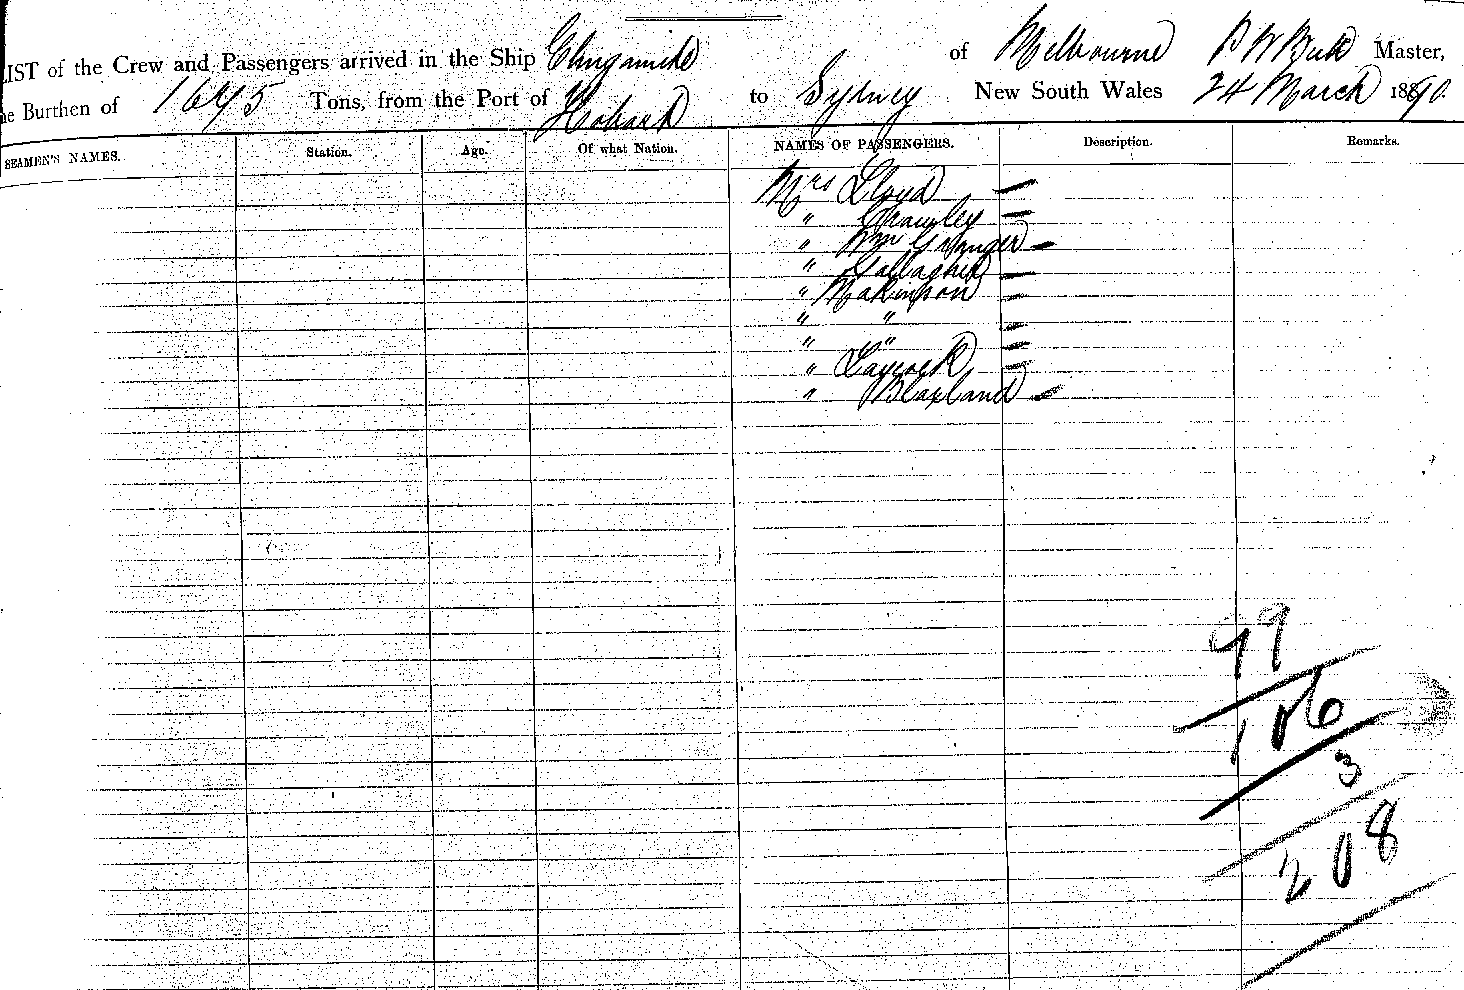 LIST of the Crew and Passengers arrived in the Ship Elingamite of Melbourne Master,
he Burthen of 1675 Tons, from the Port of Hobart to Sydney New South Wales 24 March 1890.
SEAMEN'S NAMES. Station. Age. Of what Nation. NAMES OF PASSENGERS. Description. Remarks.
Mrs Lloyd
" Crawley
" Wm Granger
" Gallagher
" Makinson
" "
" "
" Laycock
" Blaxland
99
106
3
208